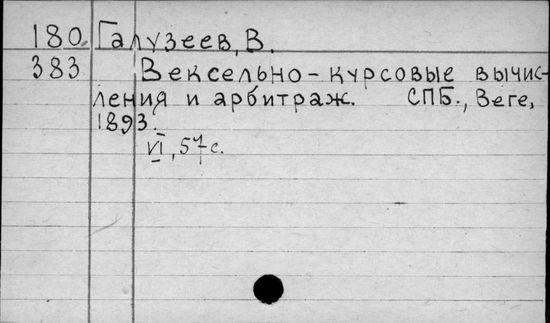 180. Галузеев, В.
383 Вексельно-курсовые вычис-
ления и арбитраж. СПБ., Веге,
1893.
VI, 57 с.